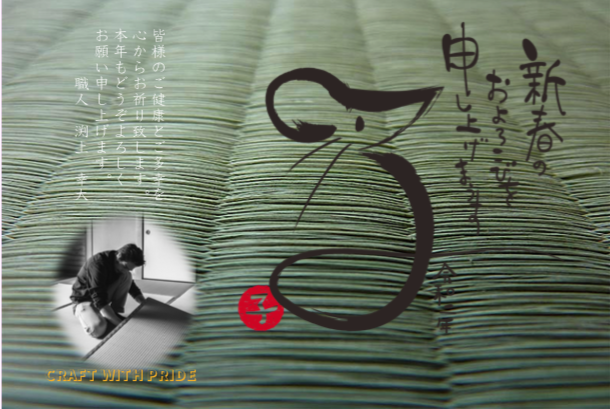 新春の
およろこびを
申し上げます
令和二年
子
皆様のご健康とご多幸を
心からお祈り致します。
本年もどうぞよろしく
お願い申し上げます。
職人 渕上
CRAFT WITH PRIDE